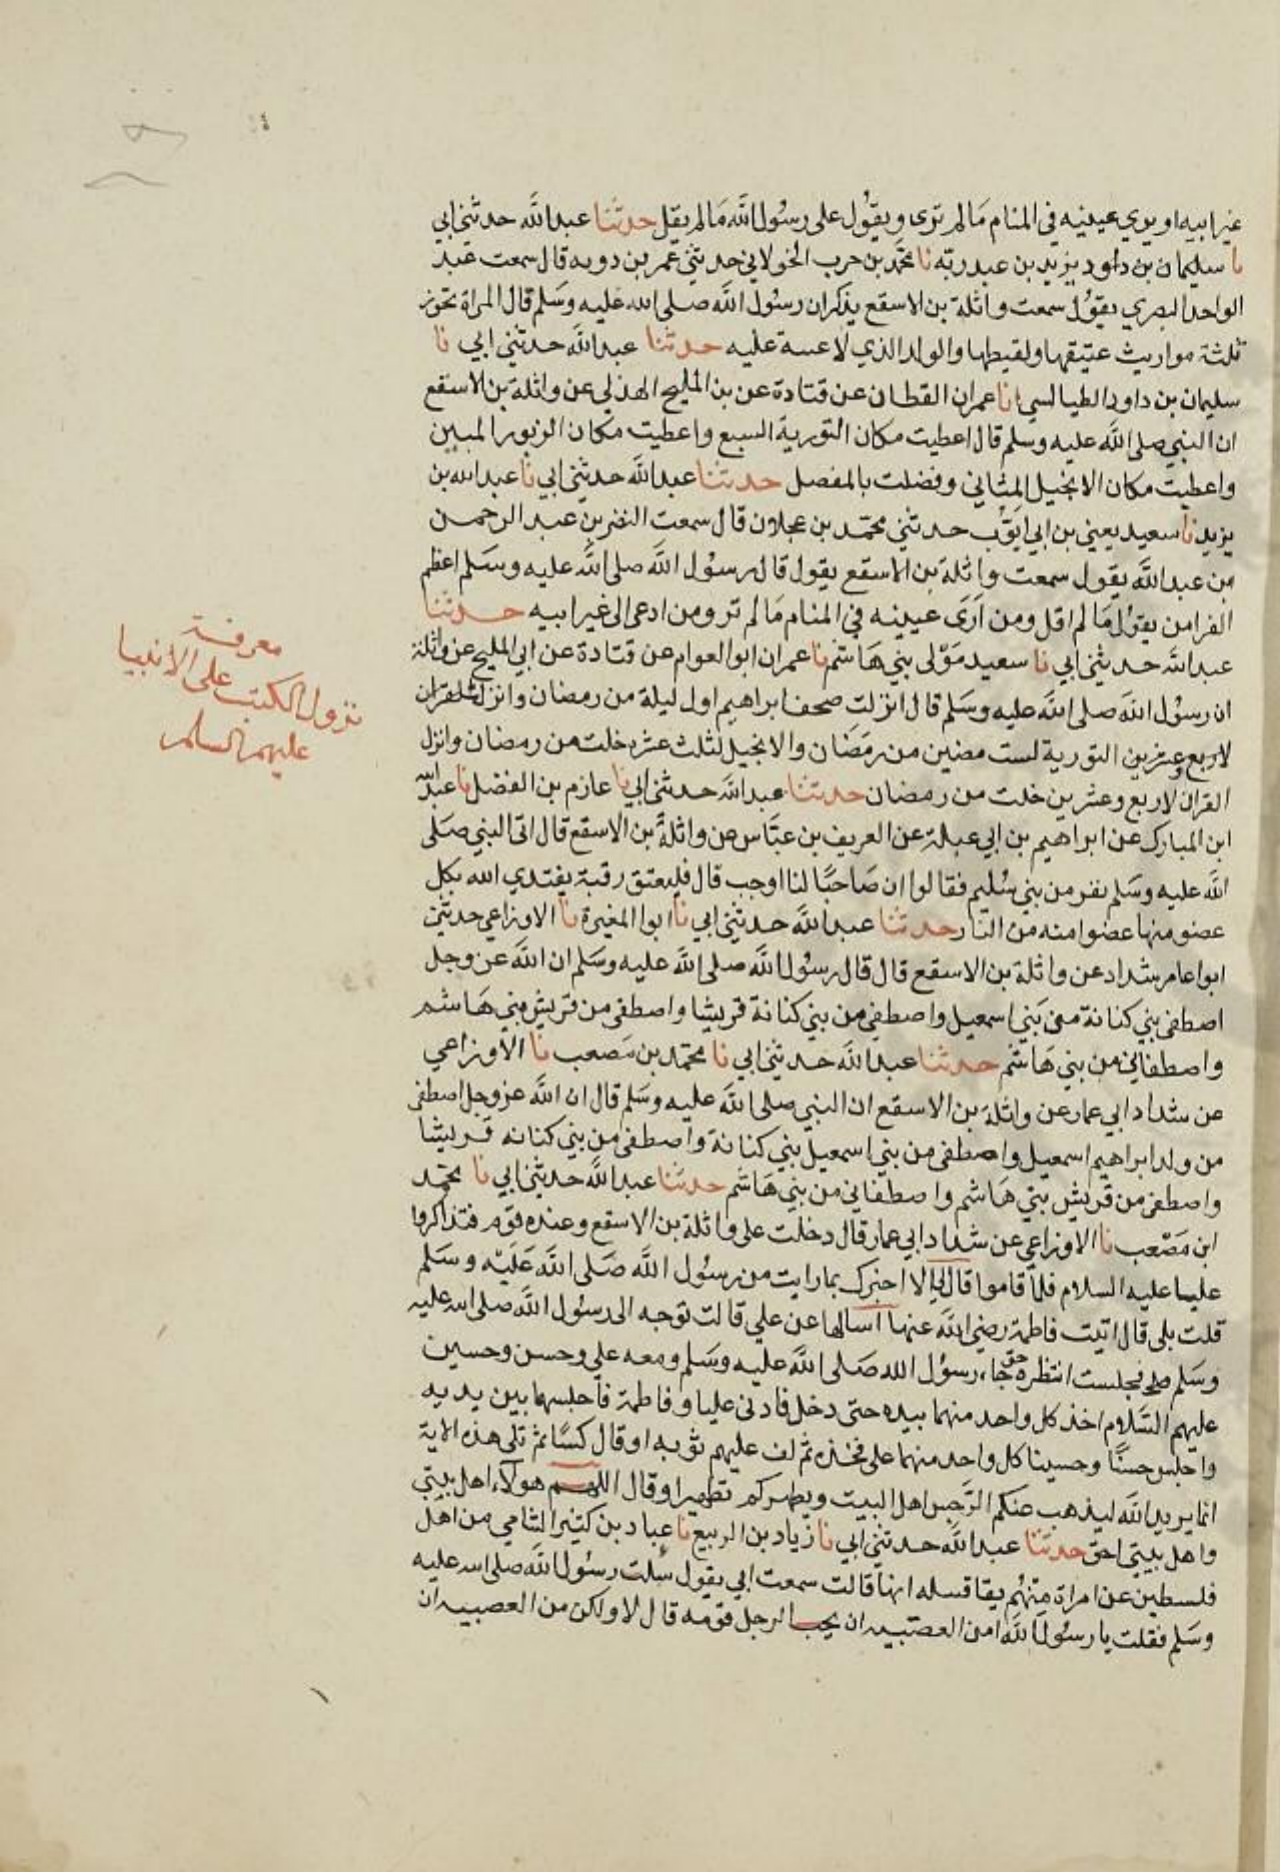 غير ابيه او يوري عينيه في المنام مالم ترى ويقول على رسول الله مالم يقل حدثنا عبد الله حدثني ابي
نا سليمان بن داود يزيد بن عبد ربه نا محمد بن حرب الخولاني حدثني عمر بن دوبه قال سمعت عبد
الواحد البصري يقول سمعت واثلة بن الاسقع يذكر ان رسول الله صلى الله عليه وسلم قال المراة تحوز
ثلثة مواريث عتيقها ولقيطها والولد الذي لاعسة عليه حدثنا عبد الله حدثني ابي نا
سليمان بن داود الطيالسي انا عمران القطان عن قتادة عن بن المليح الهذلي عن واثلة بن الاسقع
ان النبي صلى الله عليه وسلم قال اعطيت مكان التورية السبع واعطيت مكان الزبور المبين
واعطيت مكان الانجيل المثاني وفضلت بالمفصل حدثنا عبد الله حدثني ابي نا عبد الله بن
يزيد نا سعيد يعني بن ابي ايوب حدثني محمد بن عجلان قال سمعت النضر بن عبد الرحمن
من عبد الله يقول سمعت واثلة بن الاسقع يقول قال رسول الله صلى الله عليه وسلم اعظم
الفرا من يقول مالم اقل ومن ارى عينيه في المنام مالم تر ومن ادعى الى غير ابيه حدثنا
عبد الله حدثني ابي نا سعيد مولى بني هاشم نا عمران ابو العوام عن قتادة عن ابي المليح عن واثلة
ان رسول الله صلى الله عليه وسلم قال انزلت صحف ابراهيم اول ليلة من رمضان وانزلت القران
لاربع وعشرين التورية لست مضين من رمضان والانجيل لثلث عشر خلت من رمضان وانزل
القران لاربع وعشرين خلت من رمضان حدثنا عبد الله حدثني ابي نا عازم بن الفضل نا عبد الله
ابن المبارك عن ابراهيم بن ابي عبلة عن العريف بن عباس عن واثلة بن الاسقع قال اتى النبي صلى
الله عليه وسلم نفر من بني سليم فقالوا ان صاحبا لنا اوجب قال فليعتق رقبة يفتدي الله بكل
عضو منها عضوا منه من النار حدثنا عبد الله حدثني ابي نا ابو المغيرة نا الاوزاعي حدثني
ابوا عامر شداد عن واثلة بن الاسقع قال قال رسول الله صلى الله عليه وسلم ان الله عز وجل
اصطفى بني كنانة من بني اسمعيل واصطفى من بني كنانة قريشا واصطفى من قريش بني هاشم
واصطفاني من بني هاشم حدثنا عبد الله حدثني ابي نا محمد بن مصعب نا الاوزاعي
عن شداد ابي عمار عن واثلة بن الاسقع ان النبي صلى الله عليه وسلم قال ان الله عز وجل اصطفى
من ولد ابراهيم اسمعيل واصطفى من بني اسمعيل بني كنانة واصطفى من بني كنانه قريشا
واصطفى من قريش بني هاشم واصطفاني من بني هاشم حدثنا عبد الله حدثني ابي نا محمد
ابن مصعب نا الاوزاعي عن شداد ابي عمار قال دخلت على واثلة بن الاسقع وعنده قوم فتذاكروا
عليا عليه السلام فلما قاموا قال لي الا اخبرك بما رايت من رسول الله صلى الله عليه وسلم
قلت بلى قال اتيت فاطمة رضي الله عنها اسالها عن علي قالت توجه الى رسول الله صلى الله عليه
وسلم فجلست انتظره حتى جاء رسول الله صلى الله عليه وسلم ومعه علي وحسن وحسين
عليهم السلام اخذ كل واحد منهما بيده حتى دخل فادنى عليا وفاطمة فاجلسهما بين يديه
واجلس حسنا وحسينا كل واحد منهما على فخذه ثم لف عليهم ثوبه او قال كسا ثم تلى هذه الاية
انما يريد الله ليذهب عنكم الرجس اهل البيت ويطهركم تطهيرا وقال اللهم هولاء اهل بيتي
واهل بيتي احق حدثنا عبد الله حدثني ابي نا زياد بن الربيع نا عباد بن كثير الشامي من اهل
فلسطين عن امراة منهم يقا فسله انها قالت سمعت ابي يقول سئلت رسول الله صلى الله عليه
وسلم فقلت يا رسول الله امن العصبيه ان يحب الرجل قومه قال لا ولكن من العصبيه ان
معرفة
نزول الكتب على الانبيا
عليهم السلم